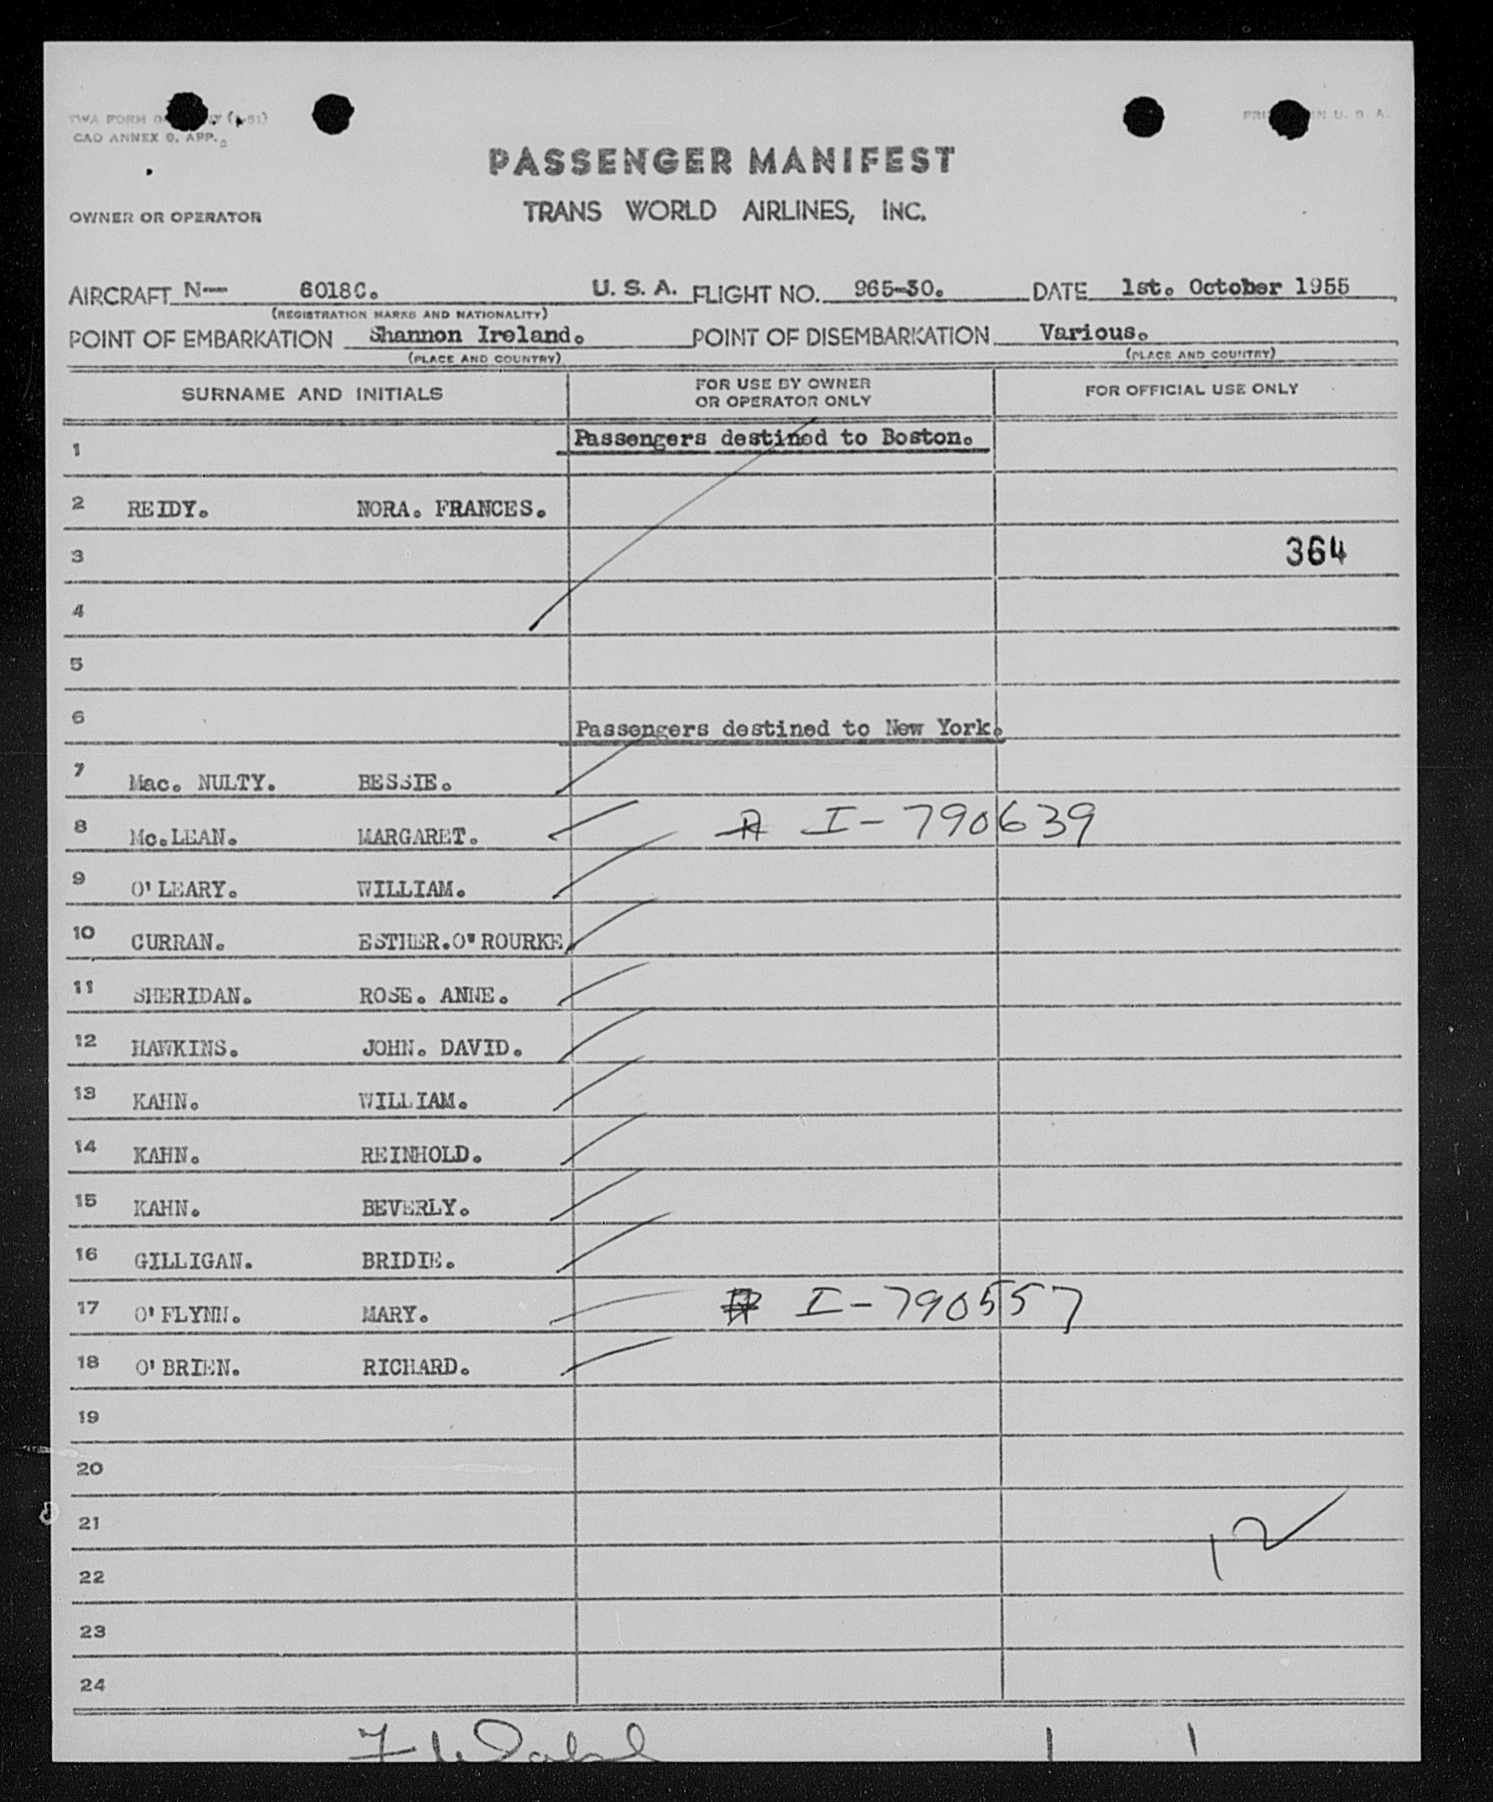 TWA FORM
CAO ANNEX 9. APP.
PRINTED IN U. S. A.
PASSENGER MANIFEST
OWNER OR OPERATOR TRANS WORLD AIRLINES, INC.
AIRCRAFT N-- 6018C. U. S. A. FLIGHT NO. 965-30. DATE 1st. October 1955
(REGISTRATION MARKS AND NATIONALITY)
POINT OF EMBARKATION Shannon Ireland. POINT OF DISEMBARKATION Various.
(PLACE AND COUNTRY) (PLACE AND COUNTRY)
SURNAME AND INITIALS FOR USE BY OWNER OR OPERATOR ONLY FOR OFFICIAL USE ONLY
1 Passengers destined to Boston.
2 REIDY. NORA. FRANCES.
3 364
4
5
6 Passengers destined to New York.
7 Mac. NULTY. BESSIE.
8 Mc.LEAN. MARGARET. I-790639
9 O'LEARY. WILLIAM.
10 CURRAN. ESTHER.O'ROURKE
11 SHERIDAN. ROSE. ANNE.
12 HAWKINS. JOHN. DAVID.
13 KAHN. WILLIAM.
14 KAHN. REINHOLD.
15 KAHN. BEVERLY.
16 GILLIGAN. BRIDIE.
17 O'FLYNN. MARY. I-790557
18 O'BRIEN. RICHARD.
19
20
21 12
22
23
24